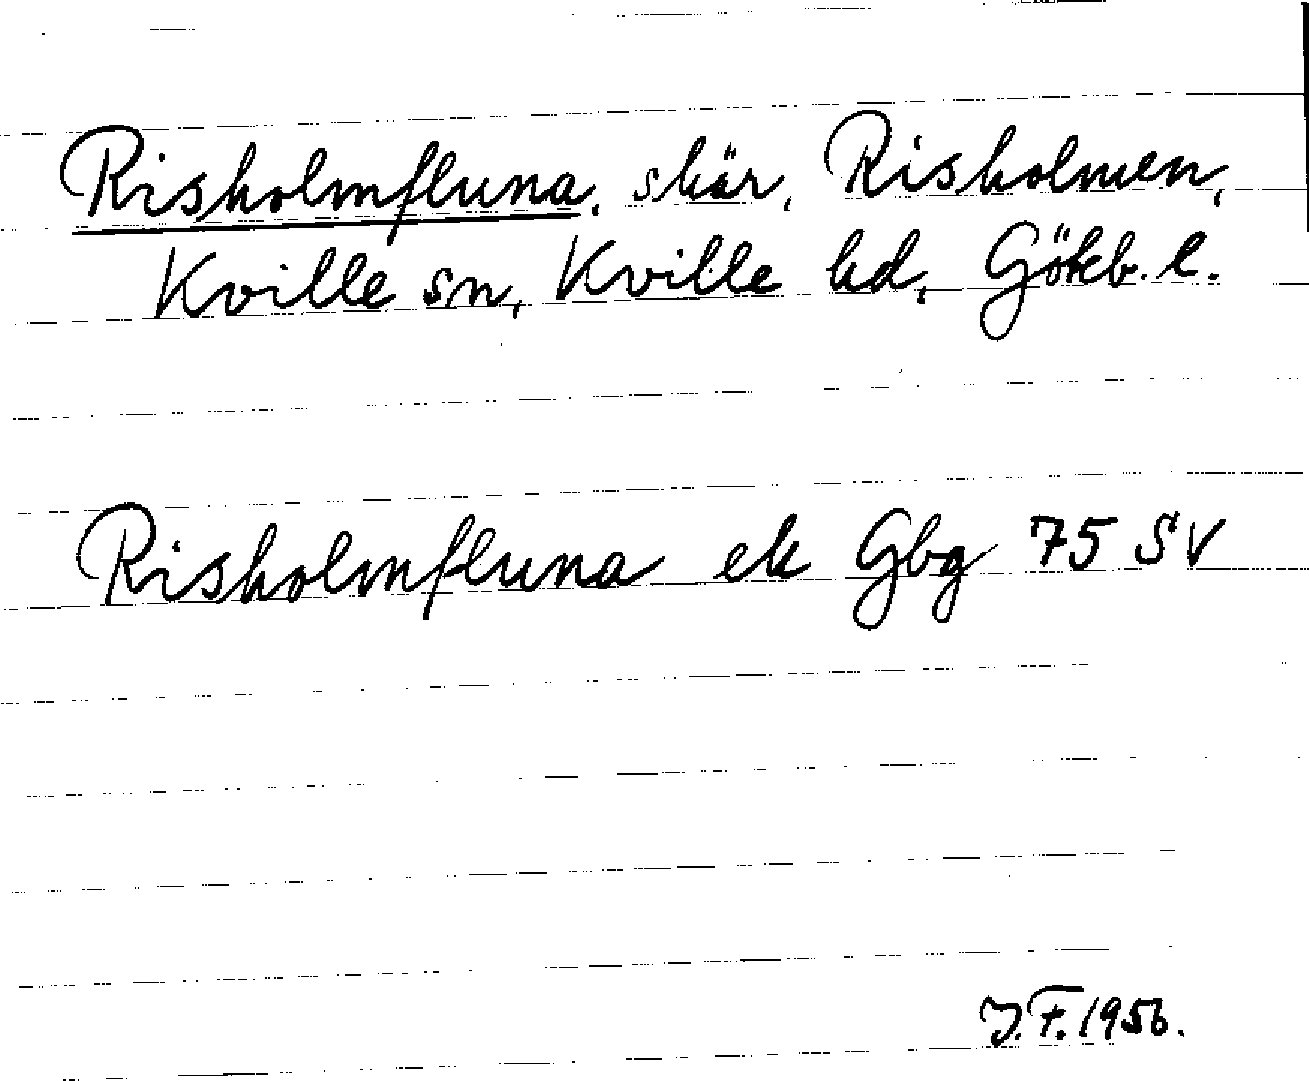 Risholmfluna, skär, Risholmen,
Kville sn, Kville hd, Göteb. l.
Risholmfluna ek Gbg 75 SV
J.F. 1956.